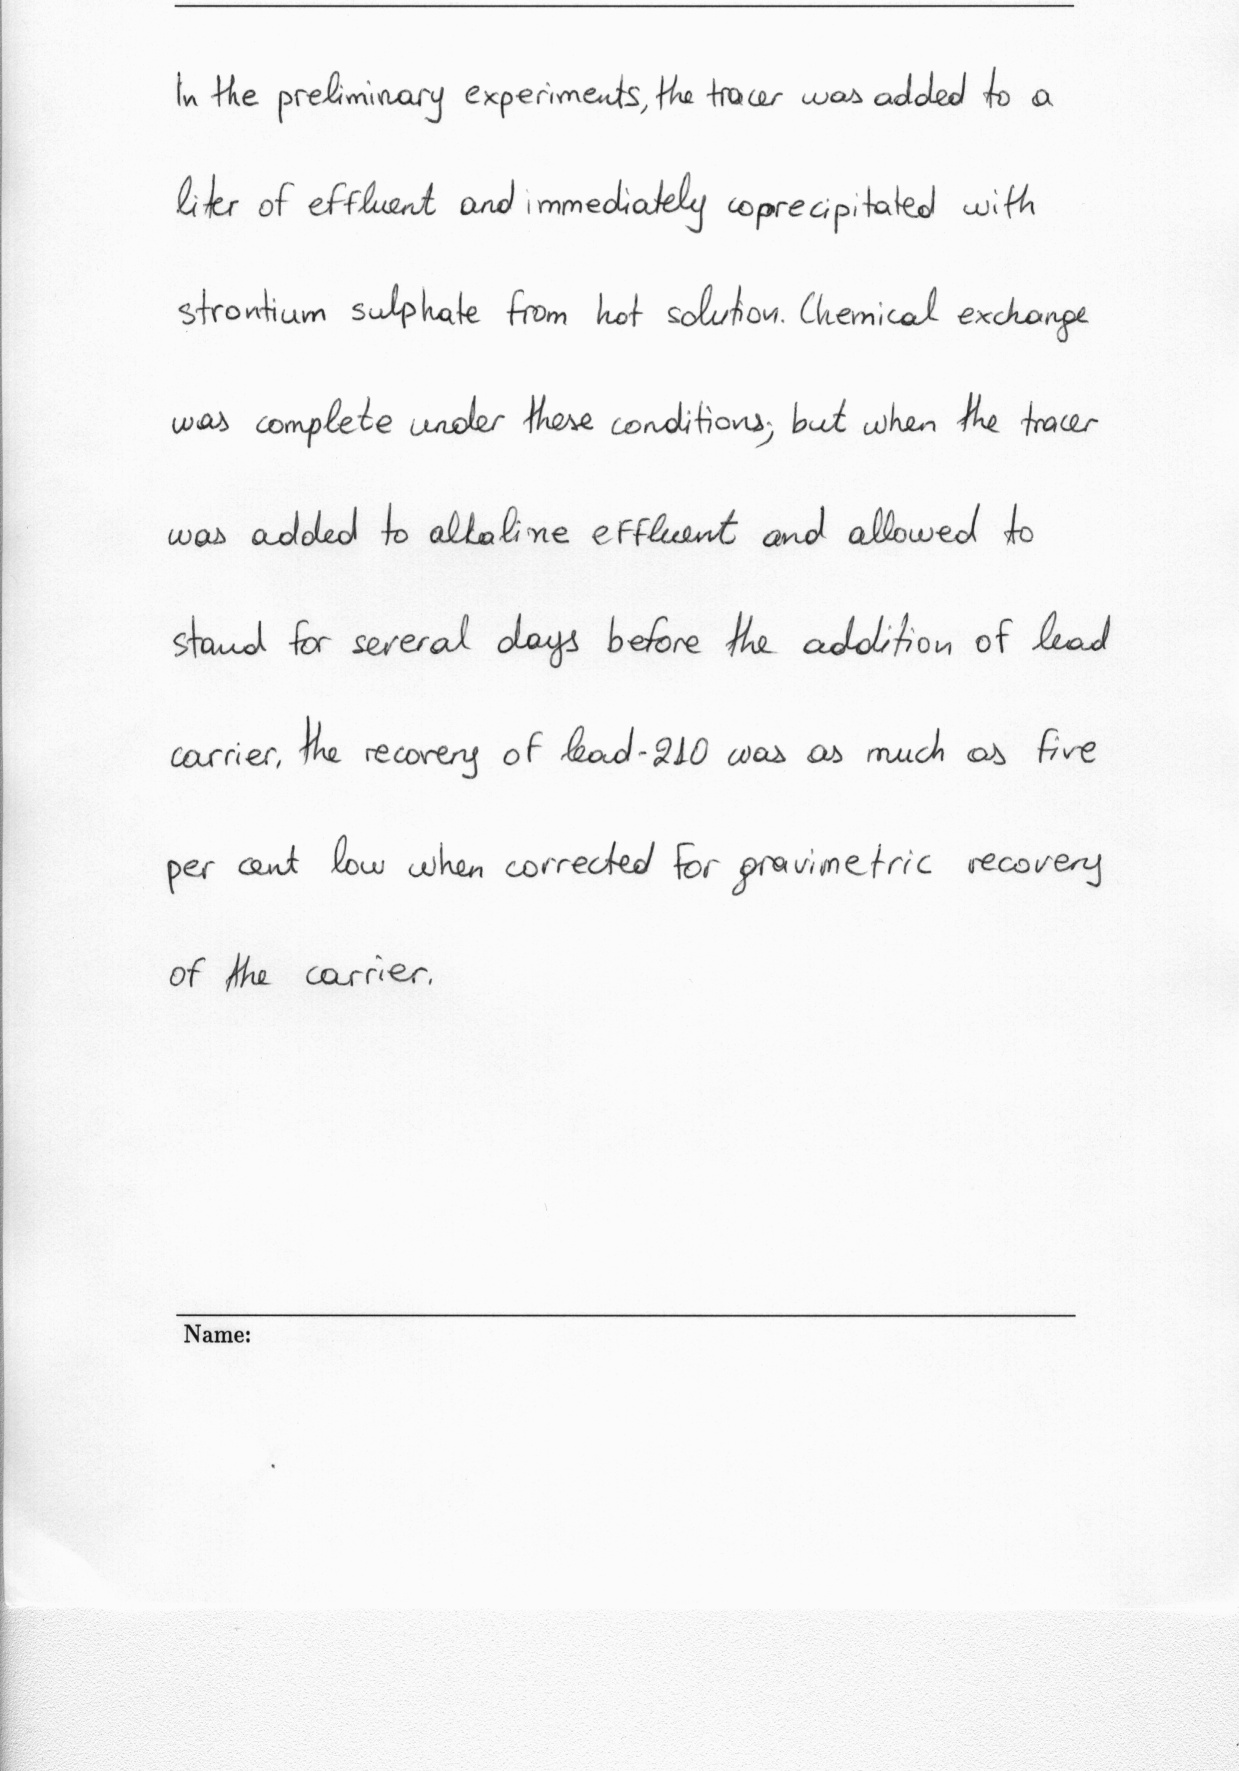 In the preliminary experiments, the tracer was added to a
liter of effluent and immediately coprecipitated with
strontium sulphate from hot solution. Chemical exchange
was complete under these conditions; but when the tracer
was added to alkaline effluent and allowed to
stand for several days before the addition of lead
carrier, the recovery of lead-210 was as much as five
per cent low when corrected for gravimetric recovery
of the carrier.
Name: